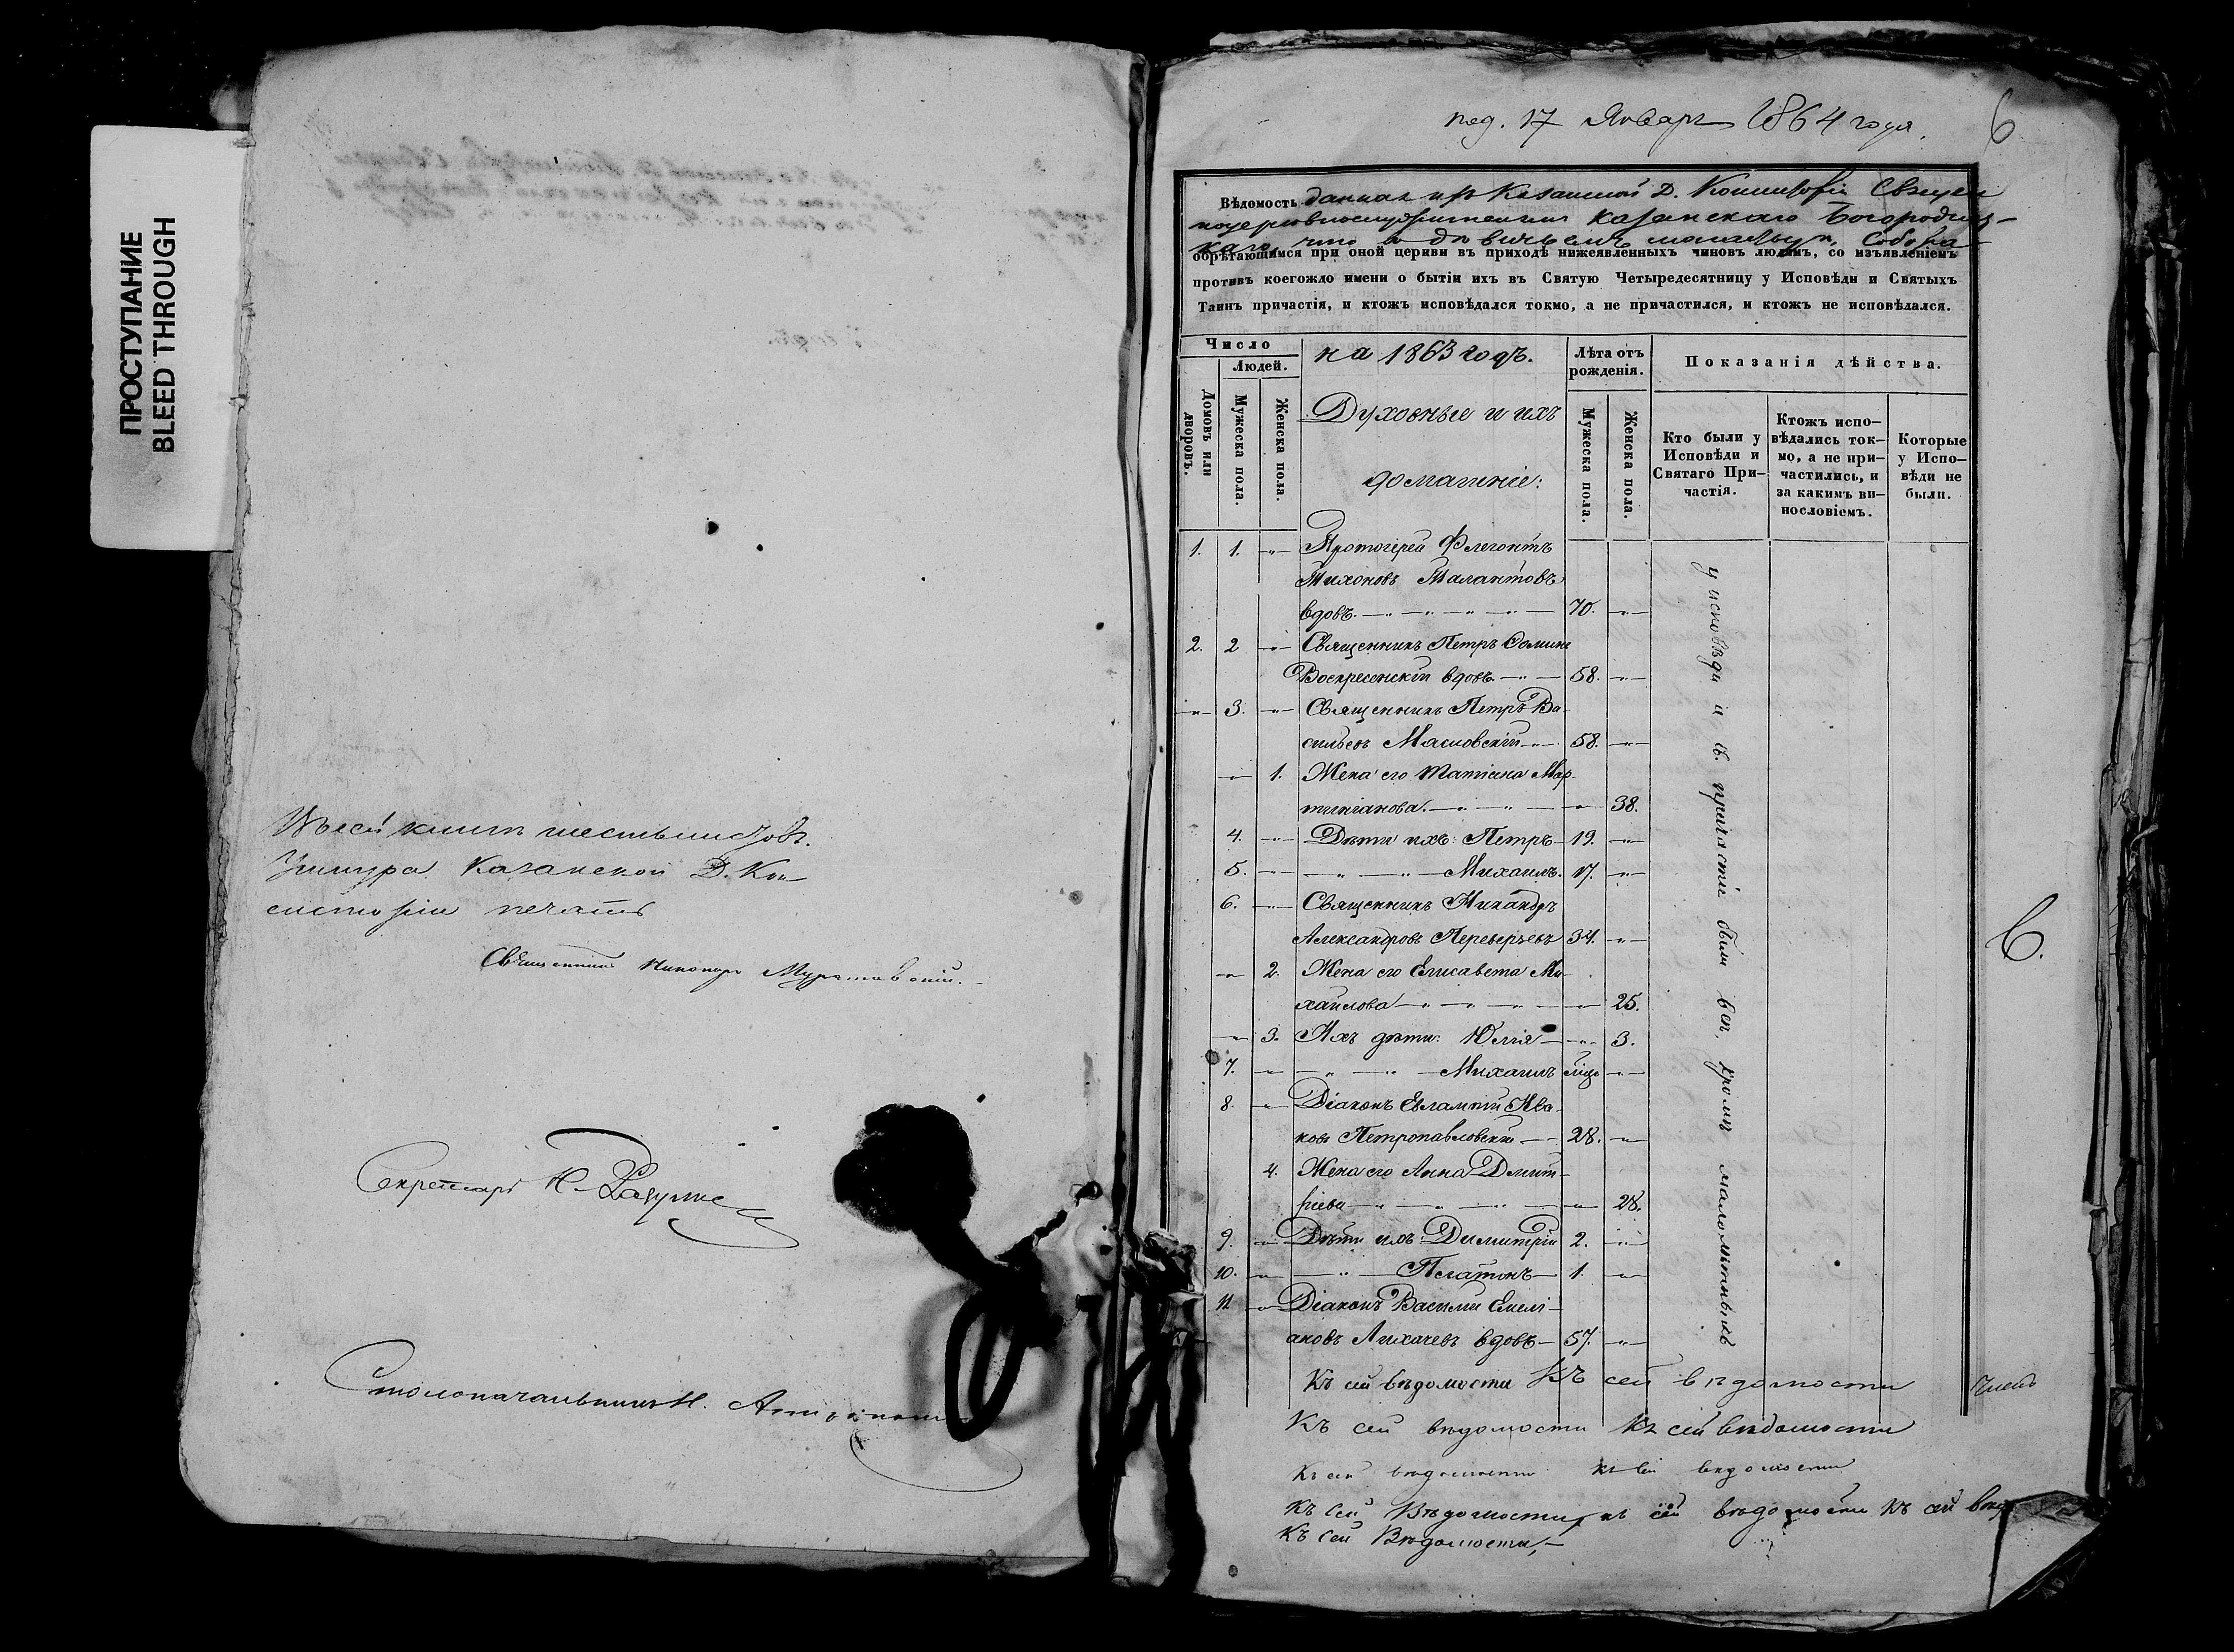 ПРОСТУПАНИЕ
BLEED THROUGH
Въ сей книгѣ шесть листовъ.
Казанской Д. Кон
систоріи печать
Священникъ Никаноръ
Секретарь Н.
Столоначальникъ Н.
17 Января 1864 года.
6
Вѣдомость данная изъ Казанской Д. Консисторіи Священ
ноцерковнослужителямъ Казанскаго Богородиц-
каго, что въ дѣвичьемъ монастырѣ, Собора
обрѣтающимся при оной церкви въ приходѣ нижеявленныхъ чиновъ людямъ, со изъявленіемъ
противъ коегождо имени о бытіи ихъ въ Святую Четыредесятницу у Исповѣди и Святыхъ
Таинъ причастія, и ктожъ исповѣдался токмо, а не причастился, и ктожъ не исповѣдался.
Число
Людей.
Домовъ или дворовъ.
Мужеска пола.
Женска пола.
на 1863 годъ.
Духовные и ихъ
домашніе:
Лѣта отъ рожденія.
Мужеска пола.
Женска пола.
Показанія дѣйства.
Кто были у Исповѣди и Святаго При-частія.
Ктожъ испо-вѣдались ток-мо, а не при-частились, и за какимъ ви-нословіемъ.
Которые у Испо-вѣди не были.
1. 1. Протоіерей Флегонтъ
Тихоновъ Талантовъ
вдовъ. 70.
2. 2 Священникъ Петръ
Воскресенскій вдовъ. 58.
3. Священникъ Петръ Ва-
сильевъ Масловскій 58.
1. Жена его Татіана Мар-
тиніанова. 38.
4. Дѣти ихъ: Петръ 19.
5. Михаилъ. 17.
6. Священникъ Никандръ
Александровъ Переверзевъ 34.
2. Жена его Елисавета Ми-
хаилова 25.
3. Ихъ дѣти: Юлія 3.
7. Михаилъ
8. Діаконъ Евлампій Ива-
новъ Петропавловскій 28.
4. Жена его Анна Дмит-
ріева 28.
9. Дѣти ихъ: Димитрій 2.
10. Платонъ 1.
11 Діаконъ Василій Емелі-
ановъ Лихачевъ вдовъ 57.
у исповѣди и св. причастіе были всѣ, кромѣ малолѣтныхъ
6.
Къ сей вѣдомости Къ сей вѣдомости
Къ сей вѣдомости Къ сей вѣдомости
Къ сей вѣдомости къ сей вѣдомости
Къ сей Вѣдомости, къ сей вѣдомости Къ сей вѣдо
Къ сей Вѣдомости,